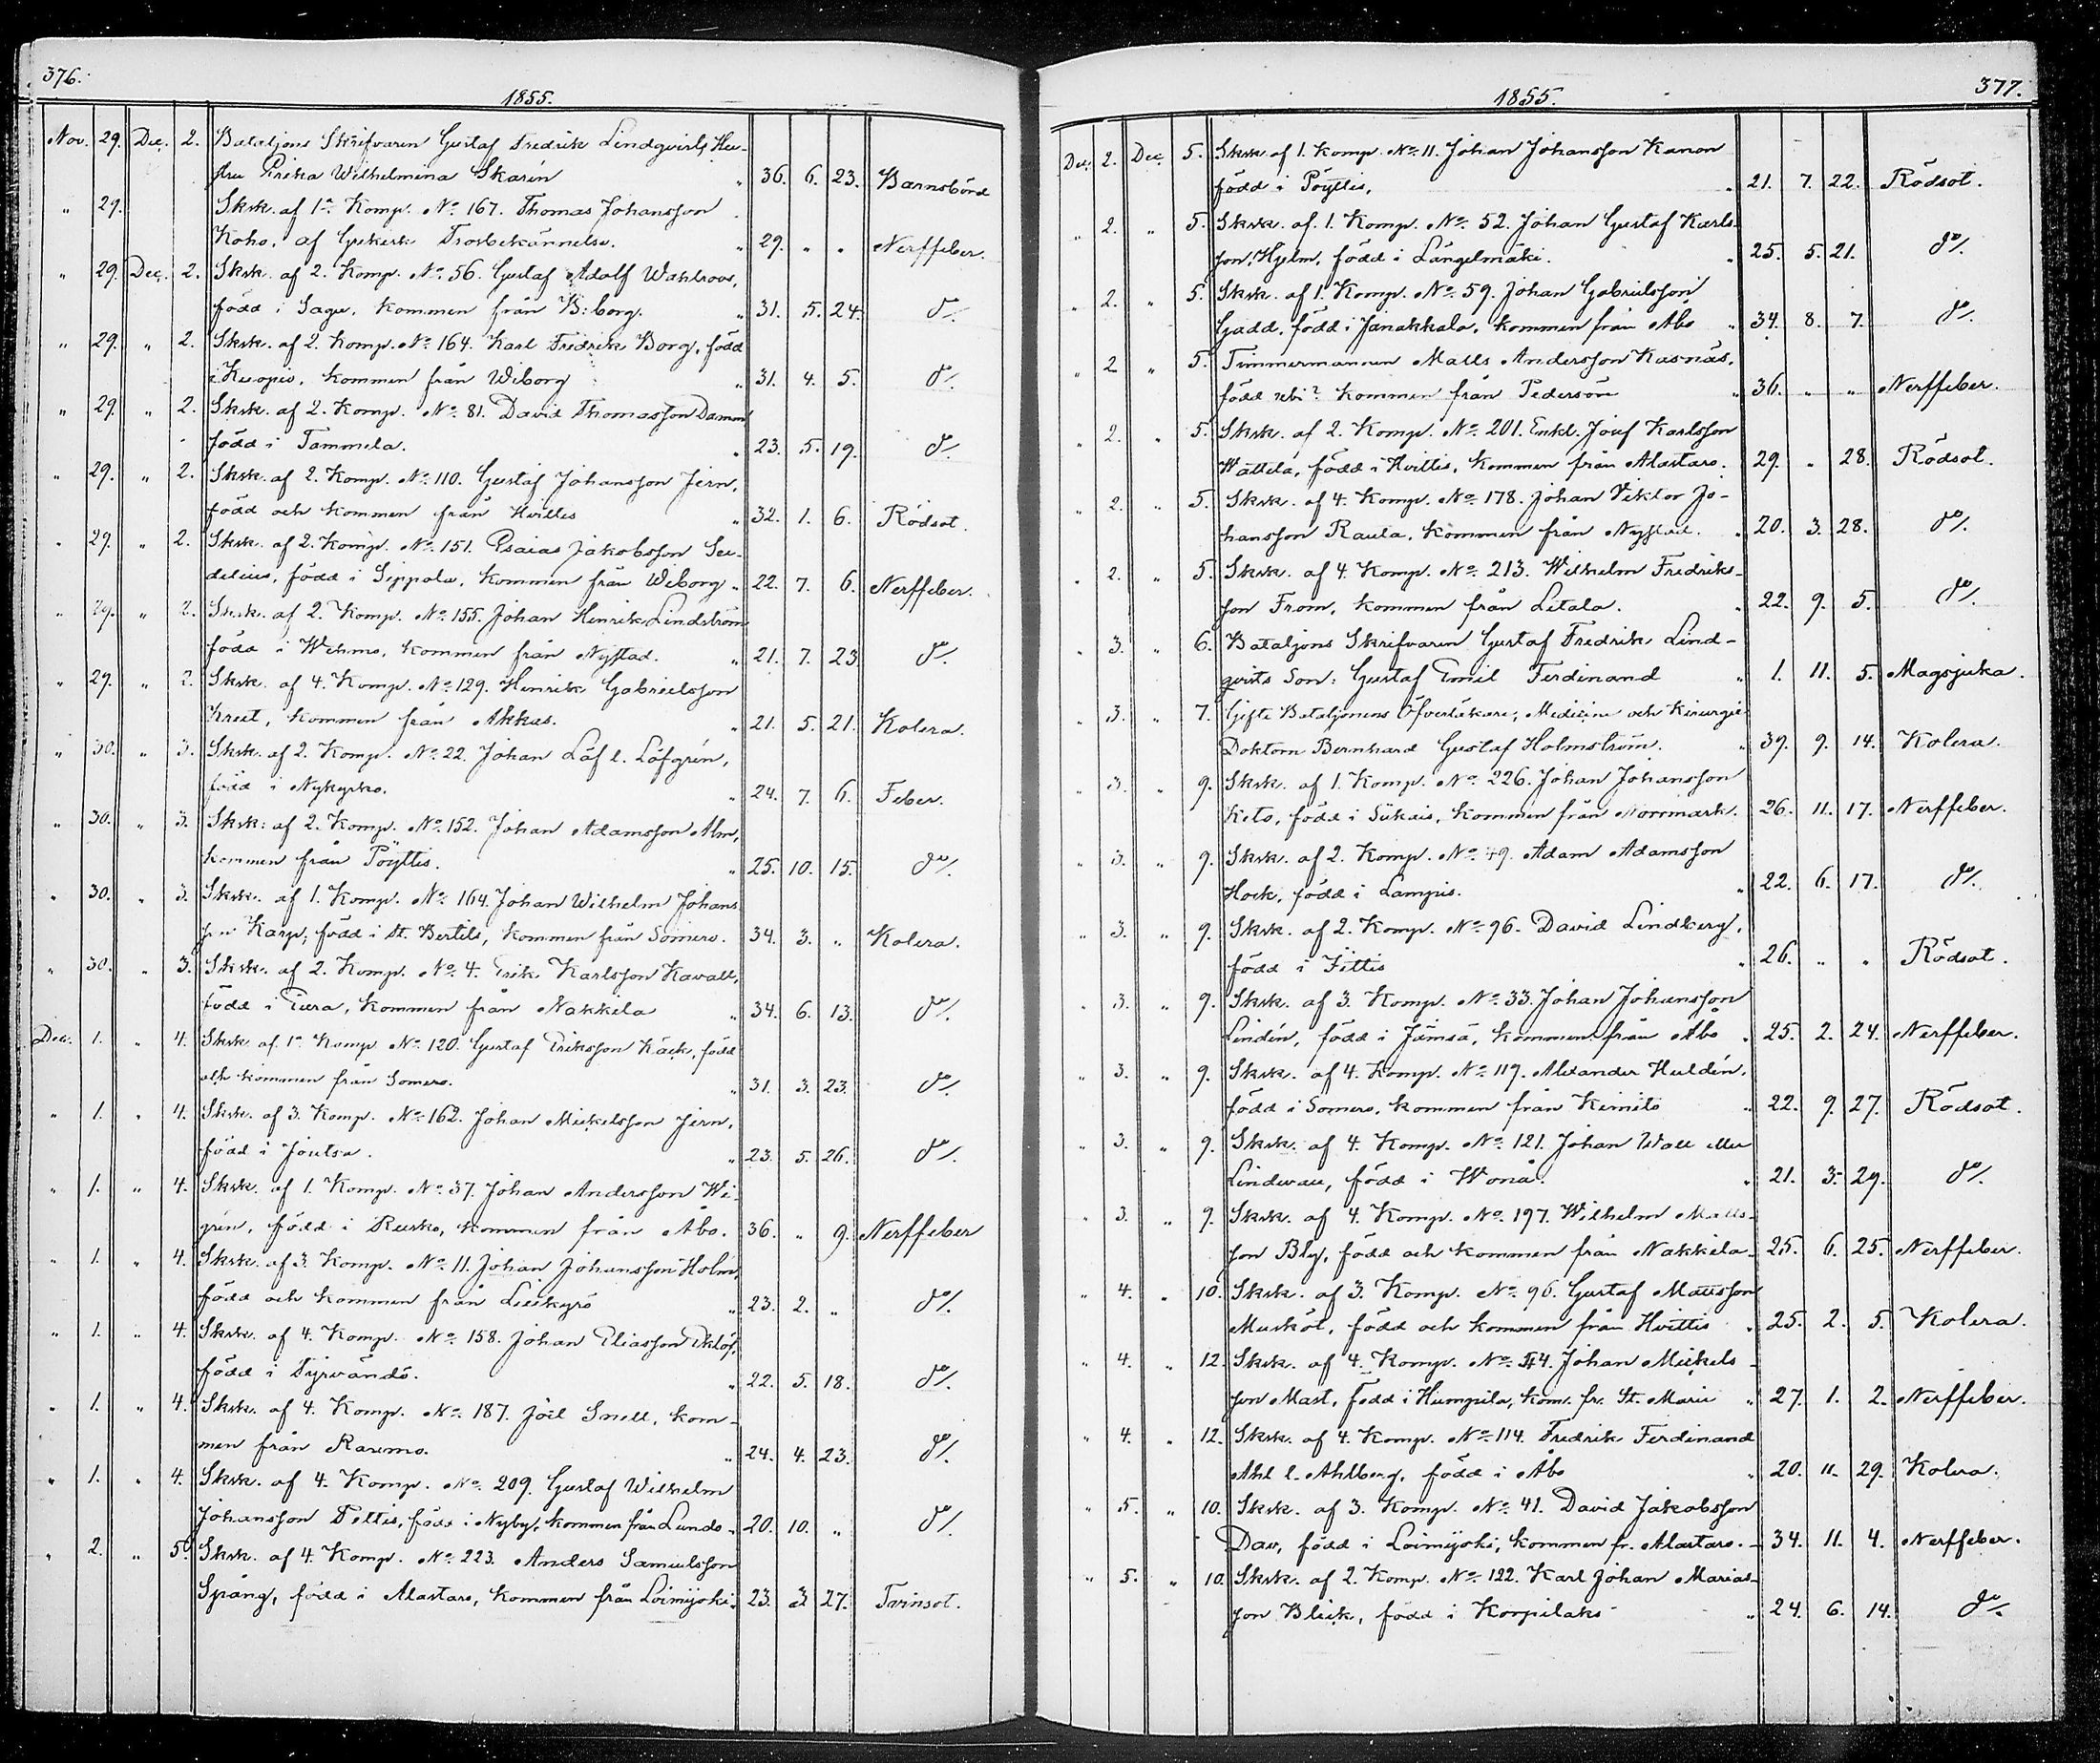 376.
1855.
Nov. 29. Dec. 2. Bataljons Skrifvaren Gustaf Fredrik Lindqvists Hu-
stru Erika Wilhelmina Skarin " 36. 6. 23. Barnsbörd
" 29. Skrk. af 1a Komp. No 167. Thomas Johansson
Koho, af Grekisk Trosbekännelse. " 29. " " Nerffeber.
" 29. Dec. 2. Skrk. af 2. Komp. No 56. Gustaf Adolf Wahlroos,
född i Sagu, kommen från B:borg. " 31. 5. 24. do/.
" 29. " 2. Skrk. af 2. Komp. No 164. Karl Fredrik Borg, född
i Kuopio, kommen från Wiborg " 31. 4. 5. do/.
" 29. " 2. Skrk. af 2. Komp. No 81. David Thomasson Damm
född i Tammela. " 23. 5. 19. do/.
" 29. " 2. Skrk. af 2. Komp. No 110. Gustaf Johansson Jern,
född och kommen från Hvittis " 32. 1. 6. Rödsot.
" 29. " 2. Skrk. af 2. Komp. No 151. Esaias Jakobsson Seu-
delius, född i Sippola, kommen från Wiborg " 22. 7. 6. Nerffeber.
" 29. " 2. Skrk. af 2. Komp. No 155. Johan Henrik Lindström
född i Wehmo, kommen från Nystad. " 21. 7. 23 do/.
" 29. " 2. Skrk. af 4. Komp. No 129. Henrik Gabrielsson
Krut, kommen från Akkas. " 21. 5. 21. Kolera.
" 30. " 3. Skrk. af 2. Komp. No 22. Johan Löf l. Löfgrén,
född i Nykyrko. " 24. 7. 6. Feber.
" 30. " 3. Skrk. af 2. Komp. No 152. Johan Adamsson Alm,
kommen från Pöyttis. " 25. 10. 15. do/.
" 30. " 3. Skrk. af 1. Komp. No 164. Johan Wilhelm Johans
son Karp, född i St. Bertils, kommen från Somero. 34. 3. " Kolera.
" 30. " 3. Skrk. af 2. Komp. No 4. Erik Karlsson Kavall,
född i Eura, kommen från Nakkila " 34. 6. 13. do/.
Dec. 1. " 4. Skrk. af 1a Komp No 120. Gustaf Eriksson Käck, född
och kommen från Somero. " 31. 3. 23. do/.
" 1. " 4. Skrk. af 3. Komp. No 162. Johan Mickelsson Jern,
född i Joutsa. " 23. 5. 26. do/.
" 1. " 4. Skrk. af 1. Komp. No 37. Johan Andersson Wi-
grén, född i Rusko, kommen från Åbo. 36. " 9. Nerffeber
" 1. " 4. Skrk. af 3. Komp. No 11. Johan Johansson Holm,
född och kommen från Lillkyro " 23. 2. " do/.
" 1. " 4. Skrk. af 4. Komp. No 158. Johan Eliasson Eklöf,
född i Tyrvändö. " 22. 5. 18. do/.
" 1. " 4. Skrk. af 4. Komp. No 187. Joel Snell, kom-
men från Raumo. " 24. 4. 23. do/.
" 1. " 4. Skrk. af 4. Komp. No 209. Gustaf Wilhelm
Johansson Pettis, född i Nyby, kommen från Lundo " 20. 10. " do/.
" 2. " 5. Skrk. af 4. Komp. No 223. Anders Samuelsson
Spång, född i Alastaro, kommen från Loimijoki. 23. 3 27. Tvinsot.
377.
1855.
Dec. 2. Dec. 5. Skrk. af 1. Komp. No 11. Johan Johansson Kanon
född i Pöyttis, " 21. 7. 22. Rödsot.
" 2. " 5. Skrk. af. 1. Komp. No 52. Johan Gustaf Karls-
son Hjelm, född i Längelmäki. " 25. 5. 21. do/.
" 2. " 5. Skrk. af 1. Komp. No 59. Johan Gabrielsson
Gadd, född i Janakkala, kommen från Åbo " 34. 8. 7. do/.
" 2 " 5. Timmermannen Matts Andersson Kasnäs,
född ubi? kommen från Pedersöre " 36. " " Nerffeber.
" 2. " 5. Skrk. af 2. Komp. No 201. Enkl. Josef Karlsson
Wättilä, född i Hvittis, kommen från Alastaro. 29. " 28. Rödsot.
" 2. " 5. Skrk. af 4. Komp. No 178. Johan Viktor Jo-
hansson Raula, kommen från Nystad. " 20. 3. 28. do/.
" 2. " 5. Skrk. af 4. Komp. No 213. Wilhelm Fredriks-
son From, kommen från Letala. " 22. 9. 5. do/.
" 3. " 6. Bataljons Skrifvaren Gustaf Fredrik Lind-
qvists Son: Gustaf Emil Ferdinand " 1. 11. 5. Magsjuka.
" 3. " 7. Gifte Bataljonens Öfverläkare, Medicine och Kirurgie
Doktorn Bernhard Gustaf Holmström. " 39. 9. 14. Kolera.
" 3. " 9. Skrk. af 1. Komp. No 226. Johan Johansson
Keto, född i Siikais, kommen från Norrmark. 26. 11. 17. Nerffeber.
" 3. " 9. Skrk. af 2. Komp. No 49. Adam Adamsson
Hock, född i Lampis. " 22. 6. 17. do/.
" 3. " 9. Skrk. af 2. Komp. No 96. David Lindberg,
född i Jittis " 26. " " Rödsot.
" 3. " 9. Skrk. af 3. Komp. No 33. Johan Johansson
Lindén, född i Jämsä, kommen från Åbo " 25. 2. 24. Nerffeber.
" 3. " 9. Skrk. af 4. Komp. No 119. Alexander Huldén,
född i Somero, kommen från Kimito " 22. 9. 27. Rödsot.
" 3. " 9. Skrk. af 4. Komp. No 121. Johan Wall eller
Lindvall, född i Wånå. " 21. 3. 29. do/.
" 3. " 9. Skrk. af 4. Komp. No 197. Wilhelm Matts-
son Bly, född och kommen från Nakkila 25. 6. 25. Nerffeber.
" 4. " 10. Skrk. af 3. Komp. No 96. Gustaf Mattsson
Musköt, född och kommen från Hvittis " 25. 2. 5. Kolera.
" 4. " 12. Skrk. af 4. Komp. No 44. Johan Mickels-
son Mast, född i Humpila, kom. fr. St. Marie " 27. 1. 2. Nerffeber.
" 4. " 12. Skrk. af 4. Komp. No 114. Fredrik Ferdinand
Ahl l. Ahlberg, född i Åbo " 20. 11. 29. Kolera.
" 5. " 10. Skrk. af 3. Komp. No 41. David Jakobsson
Dav, född i Loimijoki, kommen fr. Alastaro. 34. 11. 4. Nerffeber.
" 5. " 10. Skrk. af 2. Komp. No 122. Karl Johan Marias-
son Blick, född i Korpilaks " 24. 6. 14. do/.